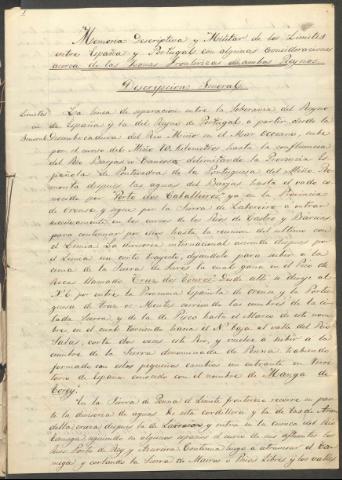 1
Memoria Descriptiva y Militar de los Limites
entre España y Portugal con algunas consideraciones
acerca de las Zonas Fronterizas de ambos Reynos.
Descripcion General
Limites La linea de separacion entre la Soberania del Reyno
en General de España y la del Reyno de Portugal, a partir desde la
Desembocadura del Rio Miño en el Mar Occeano, sube
por el curso del Miño Kilometros hasta la confluencia
del Rio Barjas ó delimitando la Provincia Es-
pañola de Pontevedra de la Portuguesa del Miño. Re-
monta despues las aguas del Barjas hasta el valle co-
nocido por Porto dos Caballeiros, ya en la Provincia
de Orense y sigue por la Sierra de Laboreiro á entrar
sucesivamente en los cursos de los Rios de Castro y Barcias
para continuar por ellos hasta la reunion del ultimo con
el Limia. La divisoria internacional asciende despues por
el Limia un corto trayecto, dejandolo para subir á la
cima de la Sierra de Jures la cual gana en el Pico de
Rocas llamado Cruz dos Touros. Desde alli se dirige al
N.E. por entre la Provincia Española de Orense y la Portu-
guesa de Tras os Montes corriendo las cumbres de la ci-
tada Sierra y de la de Pisco hasta el Marco de este nom-
bre, en el cual torciendo hacia el N. baja al valle del Rio
Salas, corta dos veces este Rio, y vuelve a subir á la
cumbre de la Sierra denominada de Penna, habiendo
formado con estos pequeños cambios un entrante en terri-
torio de España conocido con el nombre de Manga de
En la Sierra de Penna el limite fronterizo recorre en par-
te la divisoria de aguas de esta cordillera y la de las de
cruza despues la de Larouco y entra en la cuenca del Rio
siguiendo en algunos espacios el curso de sus afluentes los
Rios Porto de Rey y Continua luego a atravesar el
y cortando la Sierra de Mairos ó Penas Libres y los valles